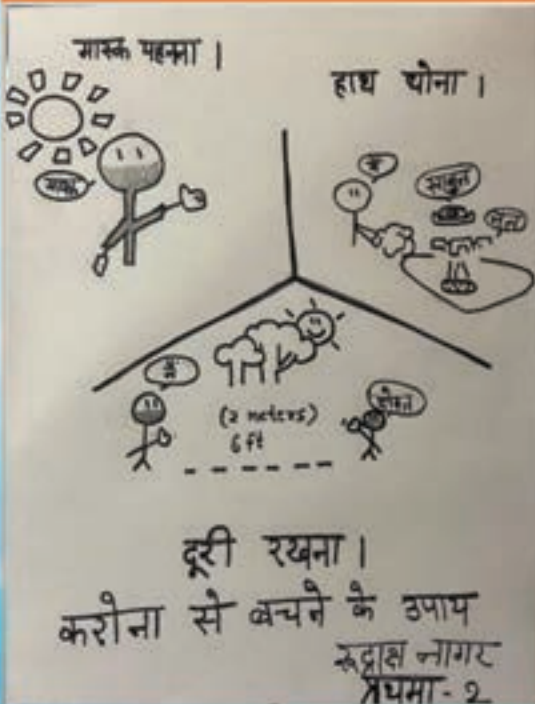 मास्क पहनना।
हाथ धोना।
मास्क
मैं
साबुन
मैं
दोस्त
(2 meters)
6 ft
दूरी रखना।
करोना से बचने के उपाय
रूद्राक्ष नागर
प्रथमा - 2